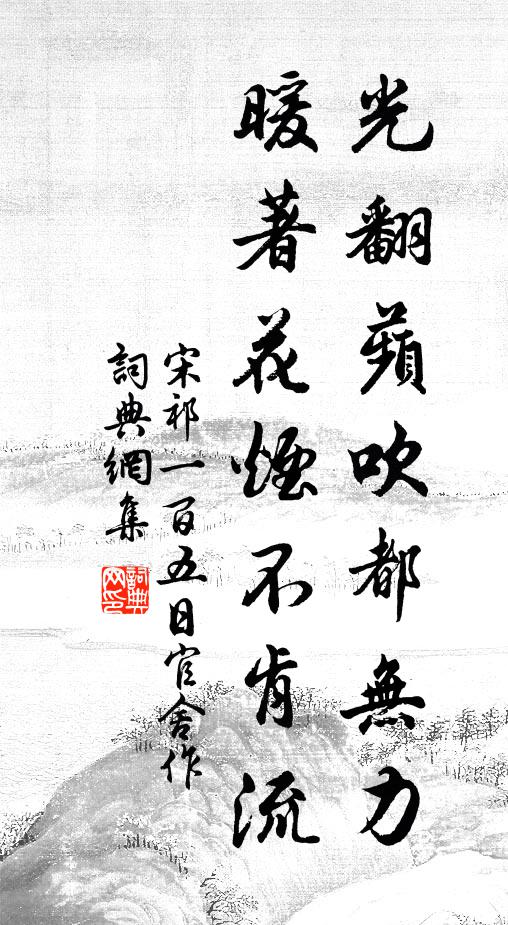 光翻蘋吹都無力
暖著花煙不肯流
宋祁一百五日官舍作
詞典網集
詞典網印